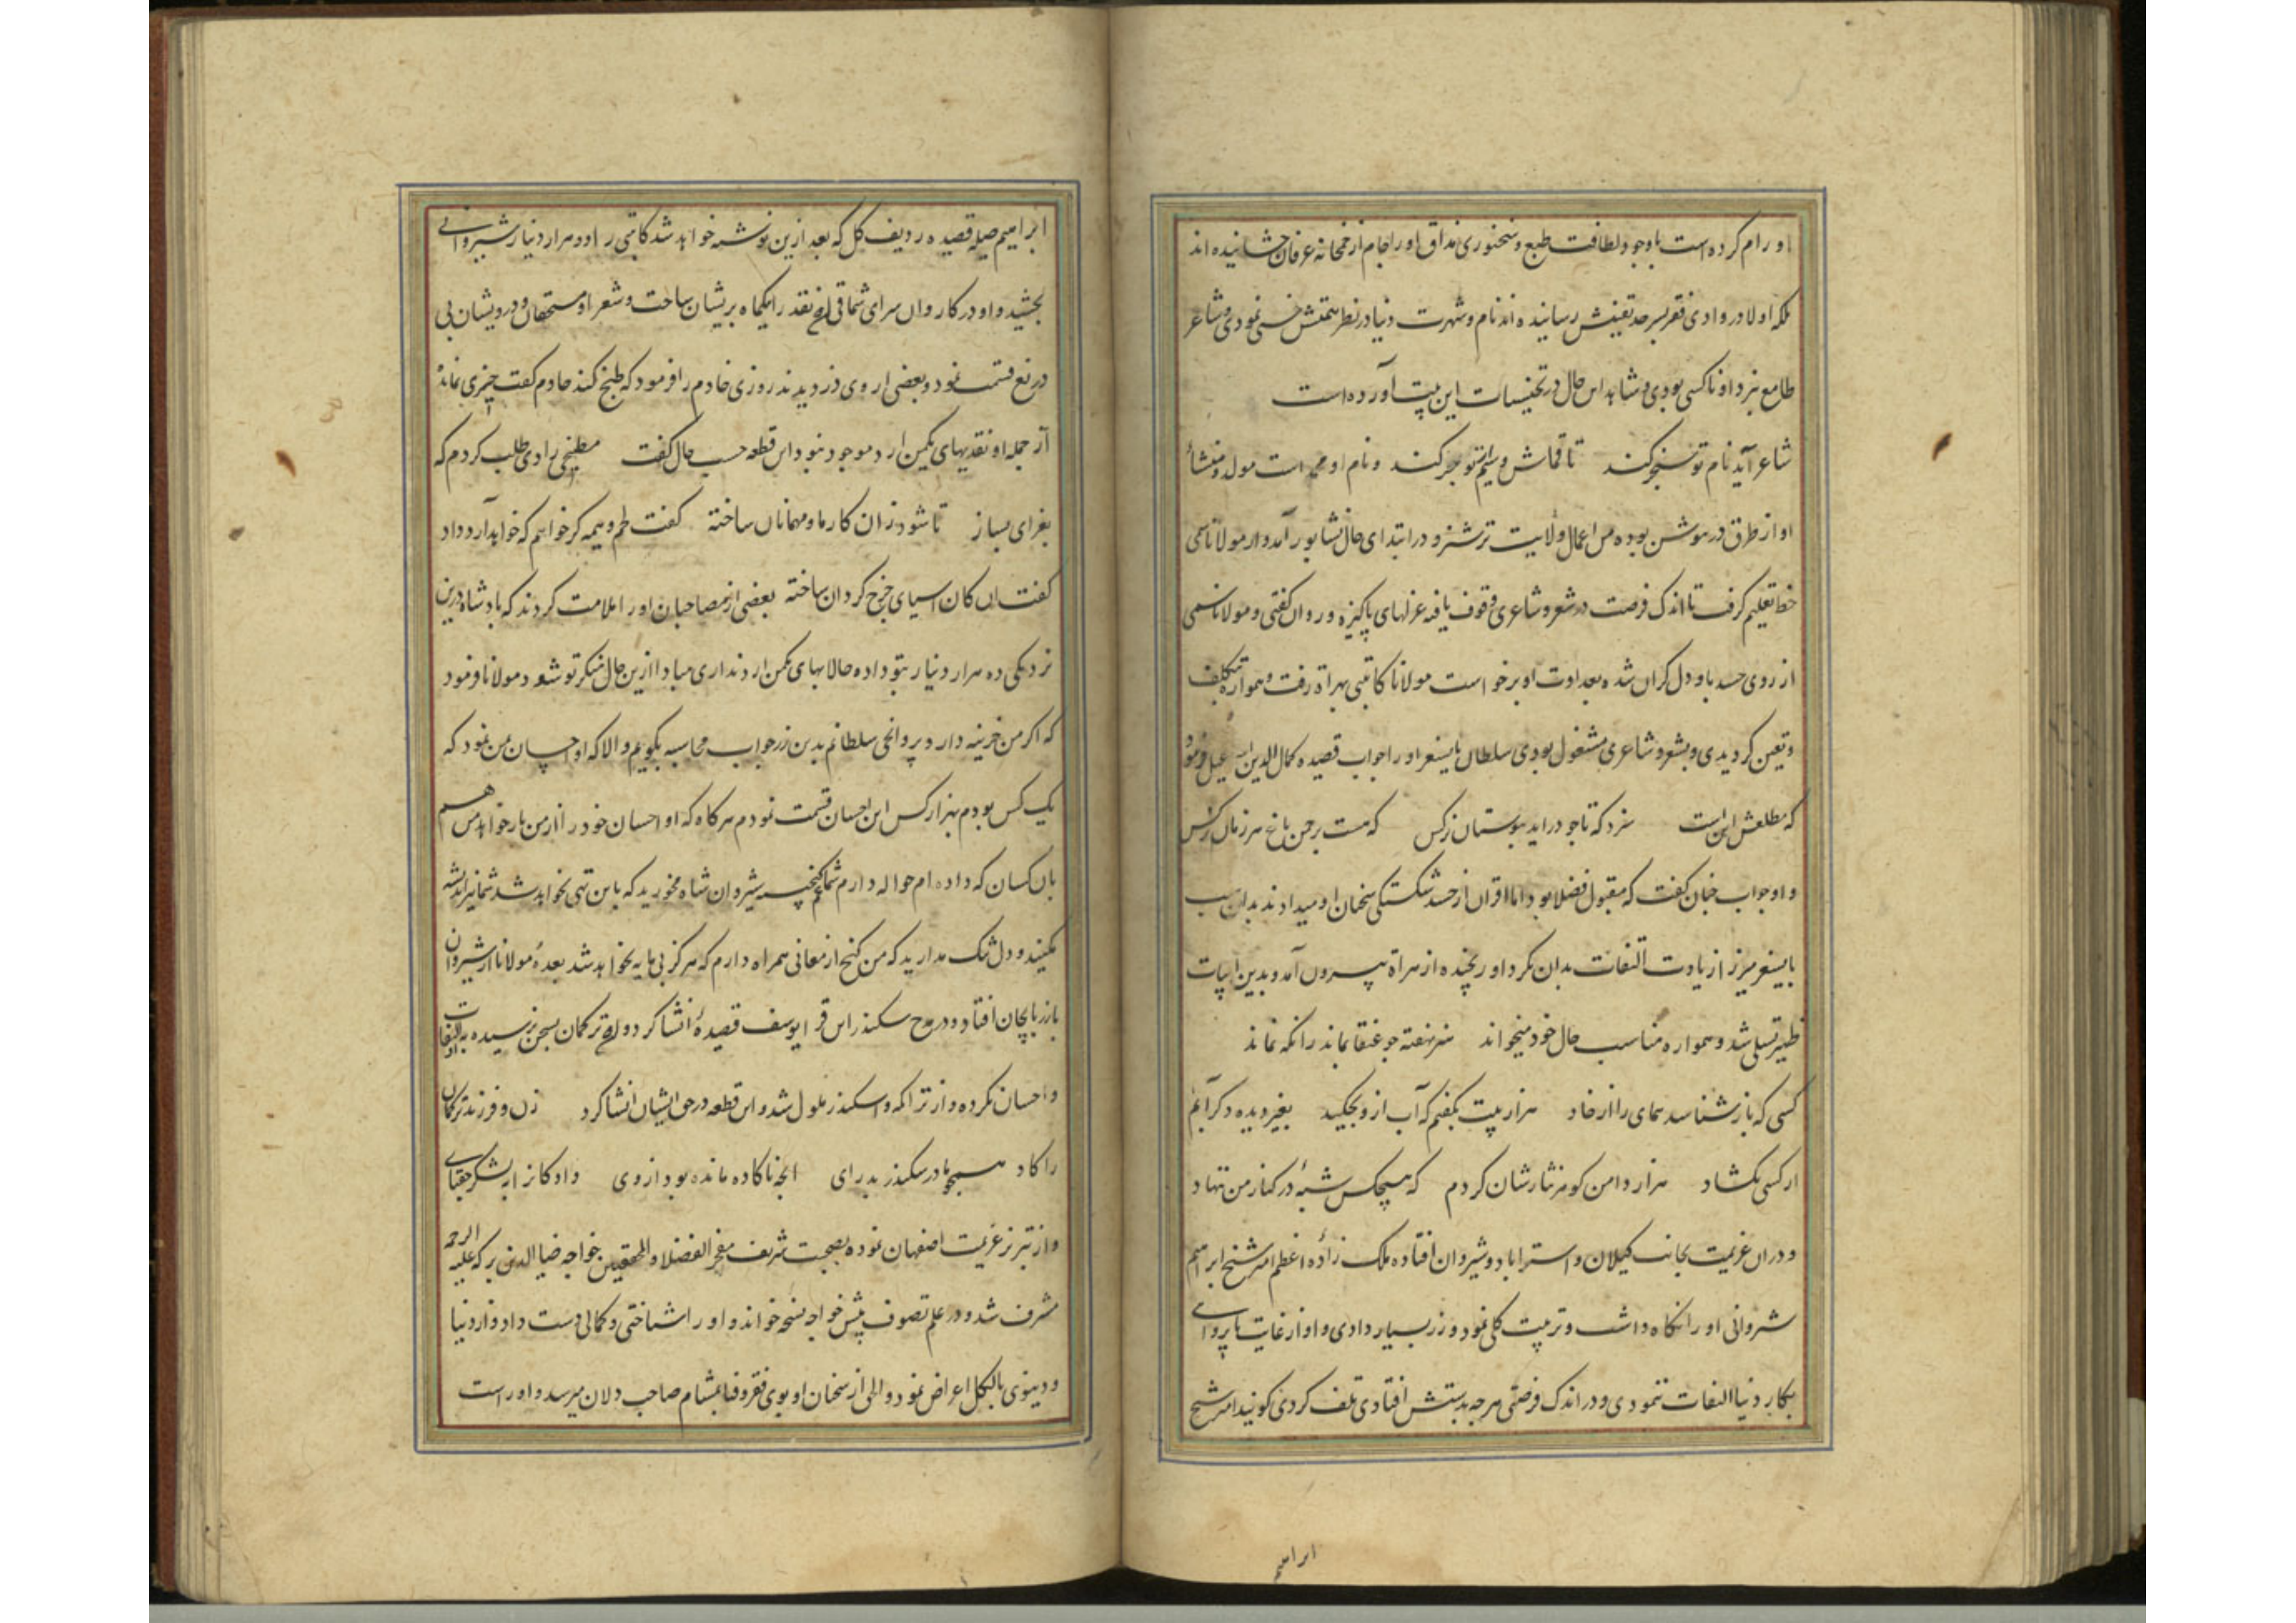 او رام کرده است باوجود لطافت طبع و سخنوری مذاق او را جام از خمخانه عرفان چشانیده اند
بلکه او لا در وادی فقر بسرحد یقینش رسانیده اند نام و شهرت دنیا در نظر همتش خسی نمودی و شاعر
طامع نزد او ناکسی بودی و شاهد این حال در تجنیسات این بیت آورده است
شاعر آید نام تو سنجر کند تا قماش و سیم از تو بجر کند و نام او محمد است مولد و منشأ
او از طرق در موشن بوده من اعمال ولایت ترشیز و در ابتدای حال نشابور آمد و از مولانا سمی
خط تعلیم گرفت تا اندک فرصت در شعر و شاعری وقوف یافته غزلهای پاکیزه و روان گفتی و مولانا سمی
از روی حسد باو دل گران شده بعداوت او برخواست مولانا کاتبی بهراة رفت و همواره بی تکلف
و تعین گردیدی و بشعر و شاعری مشغول بودی سلطان بایسنغر او را جواب قصیده کمال الدین اسمعیل فرمود
که مطلعش این است سزد که تاجور اید ببوستان نرگس که هست بر چمن باغ مرزبان نرگس
و او جواب چنان گفت که مقبول فضلا بود اما اقران از حسد شکستگی سخنان او میدادند بدان سبب
بایسنغر میرزا زیادت التفات بدان نکرد او رنجیده از هراة بیرون آمد و بدین ابیات
ظهیر تسلی شد و همواره مناسب حال خود میخواند هنر نهفته چو عنقا بماند زانکه نماند
کسی که باز شناسد همای را از خاد هزار بیت بگفتم که آب ازو بچکید بغیر دیده دگر آبم
از کسی نگشاد هزار دامن گوهر نثارشان کردم که هیچکس شبهٔ در کنار من ننهاد
و دران عزیمت بجانب گیلان و استراباد و شیروان افتاده ملک زادهٔ اعظم امیر شیخ ابراهیم
شروانی او را نگاه داشت و تربیت کلی نمود و زر بسیار دادی و او از غایت ناپروای
بکار دنیا التفات ننمودی و در اندک فرصتی هر چه بدستش افتادی تلف کردی گویند امیر شیخ
ابراهیم
ابراهیم صله قصیده ردیف گل که بعد ازین نوشته خواهد شد کاتبی را ده هزار دینار شیروانی
بخشید و او در کاروان سرای شماقی آن نقد را یکماه پریشان ساخت و شعرا و مستحقان و درویشان بی
دریغ قسمت نمود و بعضی از وی دزدیدند روزی خادم را فرمود که طبخ کند خادم گفت چیزی نماند
از جمله او نقدیهای یکمن ارد موجود نبود این قطعه حسب حال گفت مطبخی را دی طلب کردم که
بغرای بساز تا شود زان کار ما و مهمانان ساخته گفت لحم و دنبه گر خواهم که خواهد آرد داد
گفت آن کان اسیای چرخ گردان ساخته بعضی از مصاحبان او را ملامت کردند که پادشاه درین
نزدیکی ده هزار دینار بتو داده حالا بهای یکمن ارد نداری مبادا ازین حال منکر تو شود مولانا فرمود
که اگر من خزینه دار و پروانچی سلطانم بدین زر جواب محاسبه بگویم و الا که او احسان من نمود که
یک کس بودم بهزار کس این احسان قسمت نمودم هر گاه که او احسان خود را از من باز خواهد من هم
بان کسان که داده ام حواله دارم شما غم گنجینه شیروان شاه مخورید که باین تهی نخواهد شد شما نیز اندیشه
مکنید و دل تنگ مدارید که من گنج از معانی همراه دارم که هرگز بی مایه نخواهد شد بعدهٔ مولانا از شیروان
باذربایجان افتاد و در مدح سکندر ابن قرا یوسف قصیدهٔ انشا کرد و آن ترکمان بسخن نرسیده باو التفات
و احسان نکرده و از تراکمه و اسکندر ملول شد و این قطعه در حق ایشان انشا کرد زن و فرزند ترکمان
را کاد همچو مادر سکندر بدرای انچه ناگاده مانده بود از وی داد گانرا بلشکر جغتای
و از تبریز عزیمت اصفهان نموده بصحبت شریف مفخر الفضلاء و المحققین خواجه ضیاء الدین ترکه علیه الرحمه
مشرف شد و در علم تصوف پیش خواجه نسخه خواند و او را شناختی و کمالی دست داد و از دنیا
و دنیوی بالکل اعراض نمود والی از سخنان او بوی فقر و فنا بمشام صاحب دلان میرسد و او راست